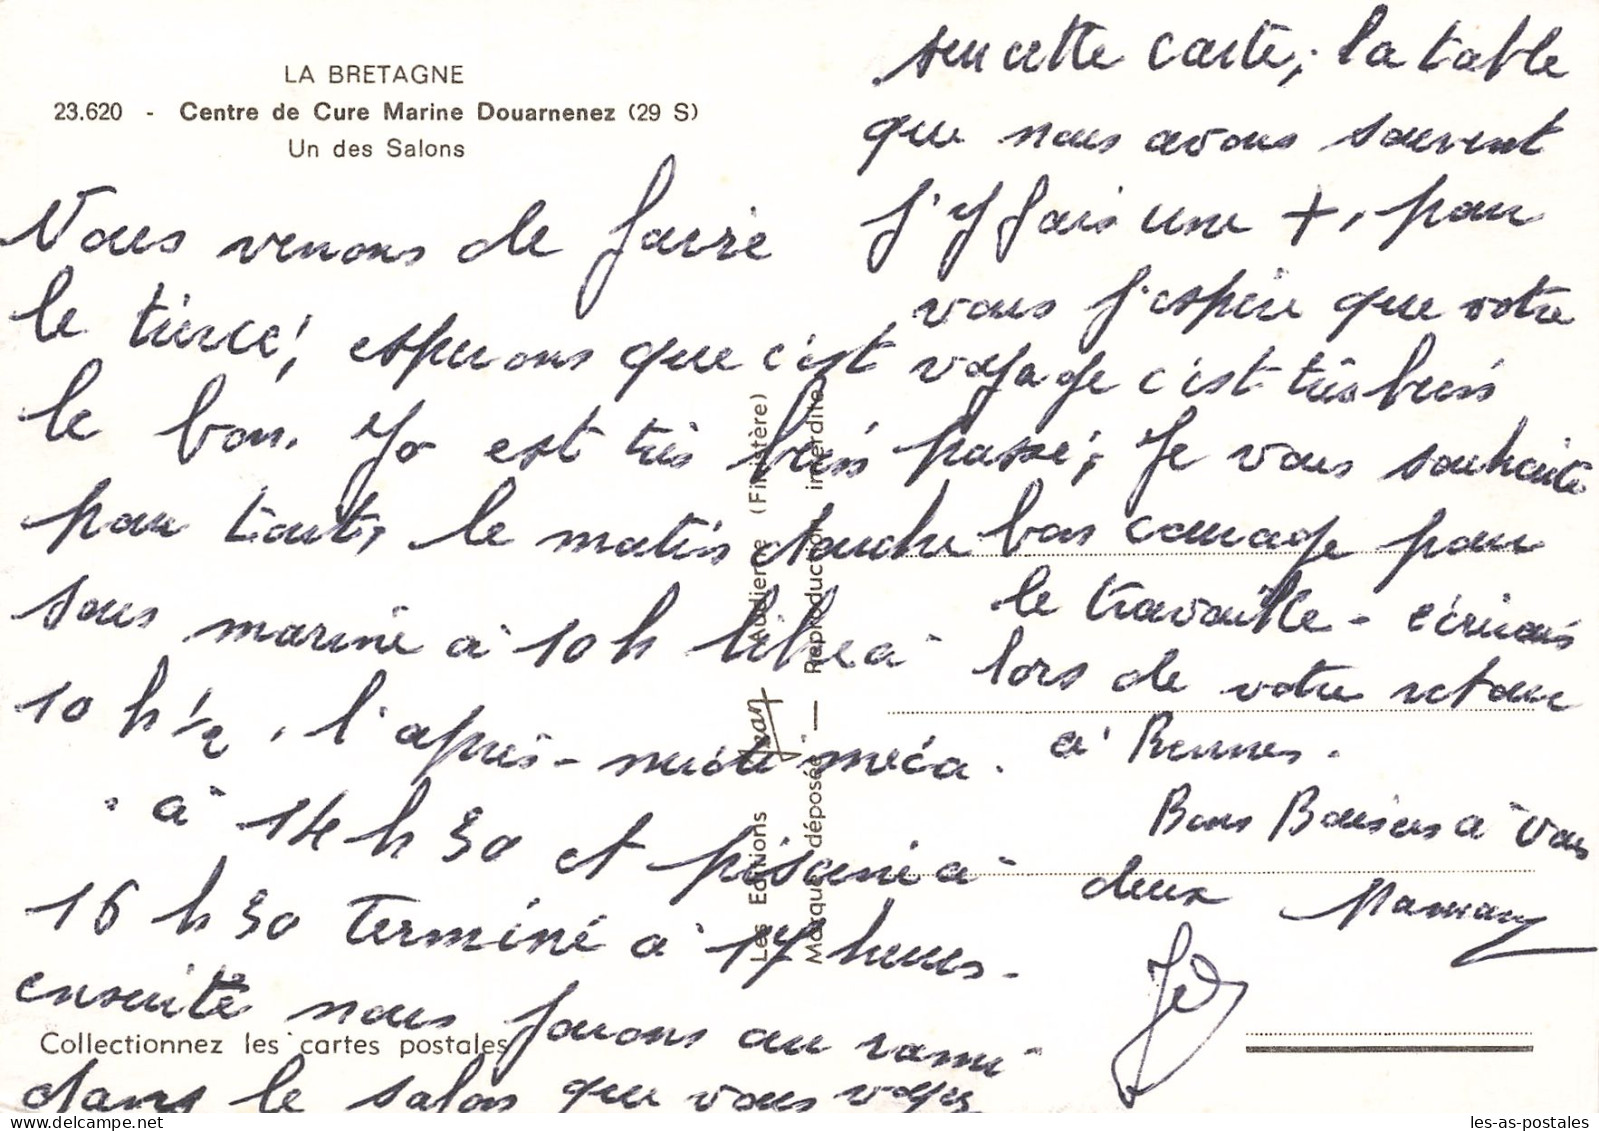 LA BRETAGNE
23.620 - Centre de Cure Marine Douarnenez (29 S)
Un des Salons
Nous venons de faire
le tiercé, esperons que c'est
le bon. Jo est très bien
pour tout, le matin douche
sous marine à 10h libre à
10 h ½, l'après-midi méca.
à 14 h 30 et piscine à
16 h 30 terminé à 17 heures.
ensuite nous jouons au rami
dans le salon que vous voyez
sur cette carte, la table
que nous avons souvent
j'y fais une +, pour
vous j'espère que votre
voyage c'est très bien
passé, Je vous souhaite
bon courage pour
le travaille - écrivais
lors de votre retour
à Rennes.
Bons Baisers à vous
deux Maman
Jo
Les Editions Jean Audierne (Finistère)
Marque déposée — Reproduction interdite
Collectionnez les cartes postales
les-as-postales